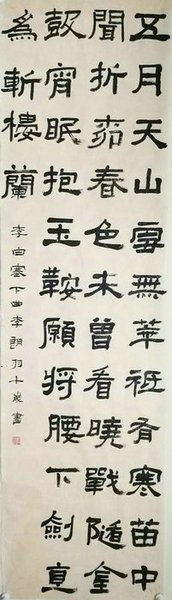 五月天山雪無華祗有寒笛中
聞折柳春色未曾看曉戰隨金
鼓宵眠抱玉鞍願將腰下劍直
為斬樓蘭
李白塞下曲李朗羽十歲書